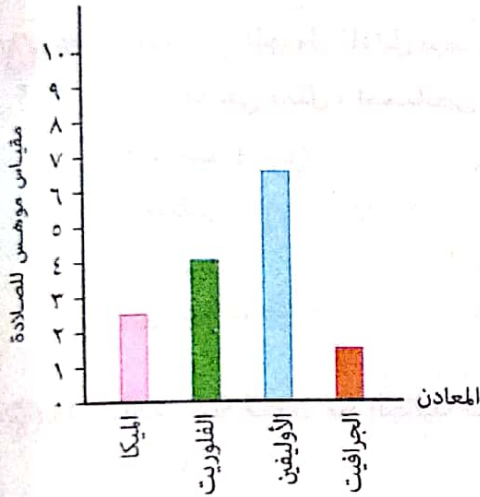 مقياس موهس للصلادة
١٠
٩
٨
٧
٦
٥
٤
٣
٢
١
٠
المعادن
الميكا
الفلوريت
الأوليفين
الجرافيت